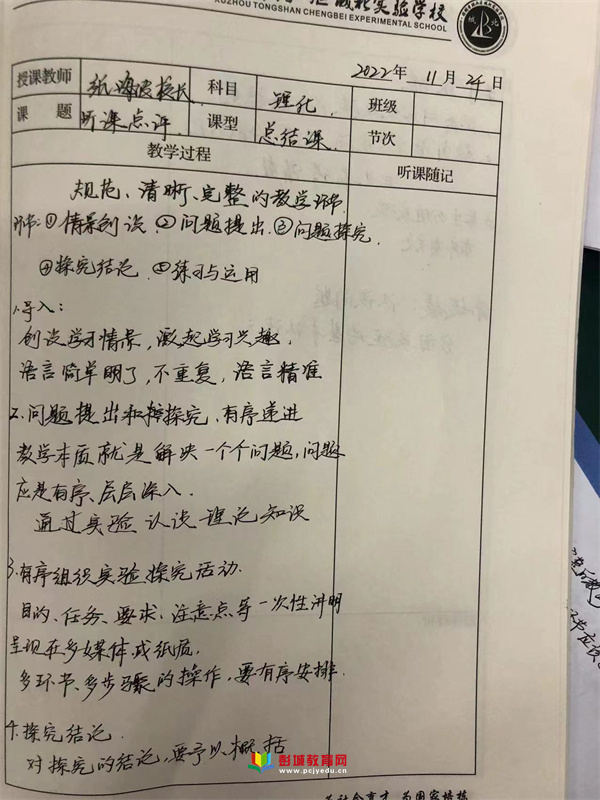 城北实验学校
XUZHOU TONGSHAN CHENGBEI EXPERIMENTAL SCHOOL
城北
2022年 11月 24日
授课教师 张海波校长 科目 理化 班级
课题 听课点评 课型 总结课 节次
教学过程 听课随记
规范、清晰、完整的教学环节
环节:①情景创设 ②问题提出 ③问题探究
④探究结论 ⑤练习与运用
1.导入:
创设学习情景,激起学习兴趣,
语言简单明了,不重复,语言精准
2.问题提出和探究,有序递进
教学本质就是解决一个个问题,问题
应是有序、层层深入.
通过实验认识理论知识
3.有序组织实验探究活动.
目的、任务、要求、注意点等一次性讲明
呈现在多媒体或纸质,
多环节、多步骤的操作,要有序安排.
4.探究结论.
对探究的结论,要予以概括
彭城教育网
www.pcjyedu.cn
为国家培栋